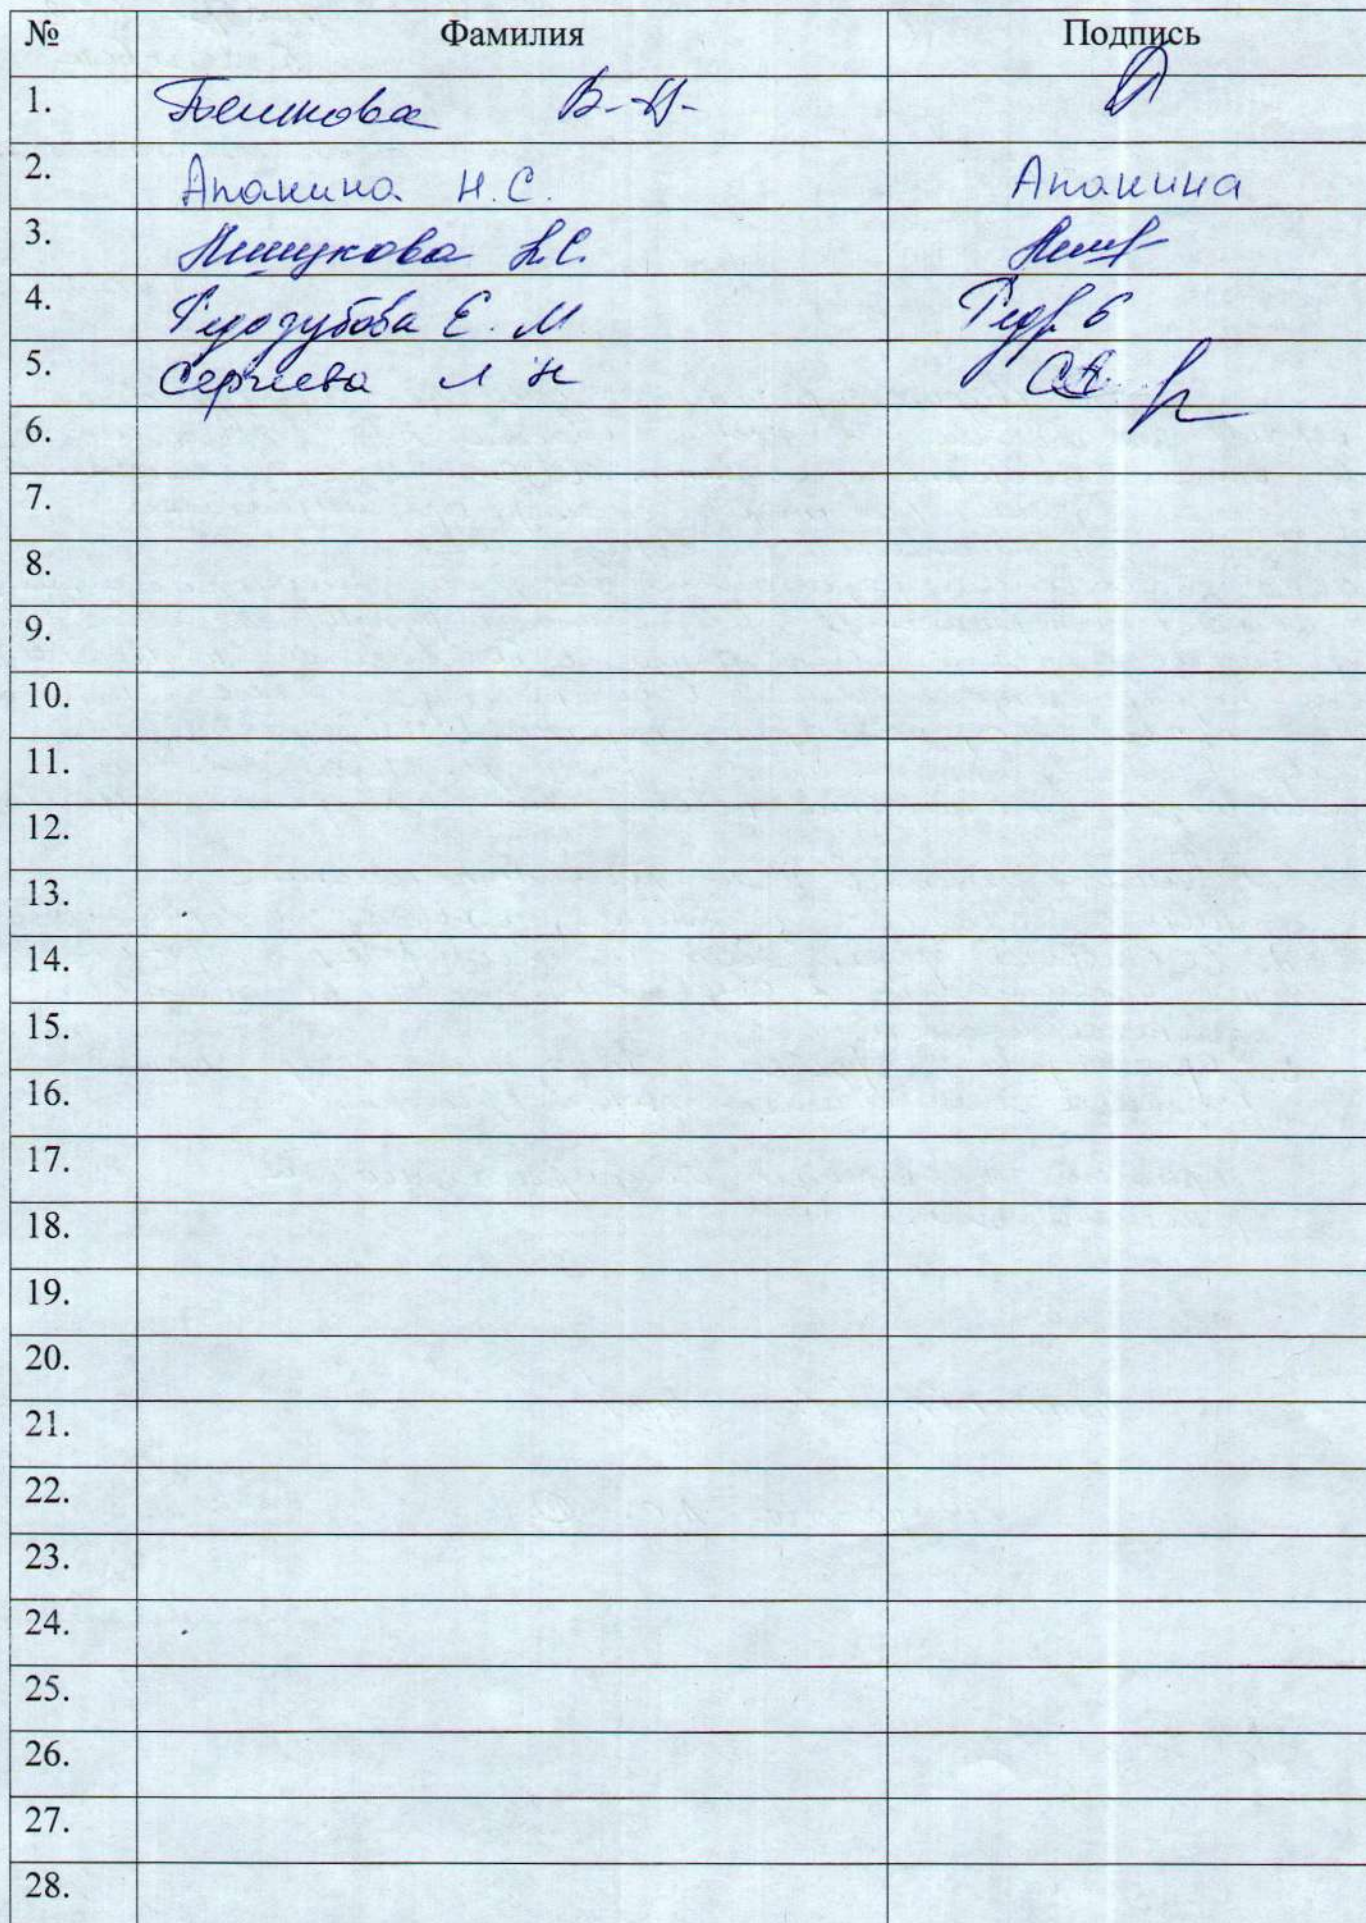 № Фамилия Подпись
1.
2. Апакина Н.С. Апакина
3. Пищукова
4. Редозубова Е. М
5. Сергеева Л Н
6.
7.
8.
9.
10.
11.
12.
13.
14.
15.
16.
17.
18.
19.
20.
21.
22.
23.
24.
25.
26.
27.
28.